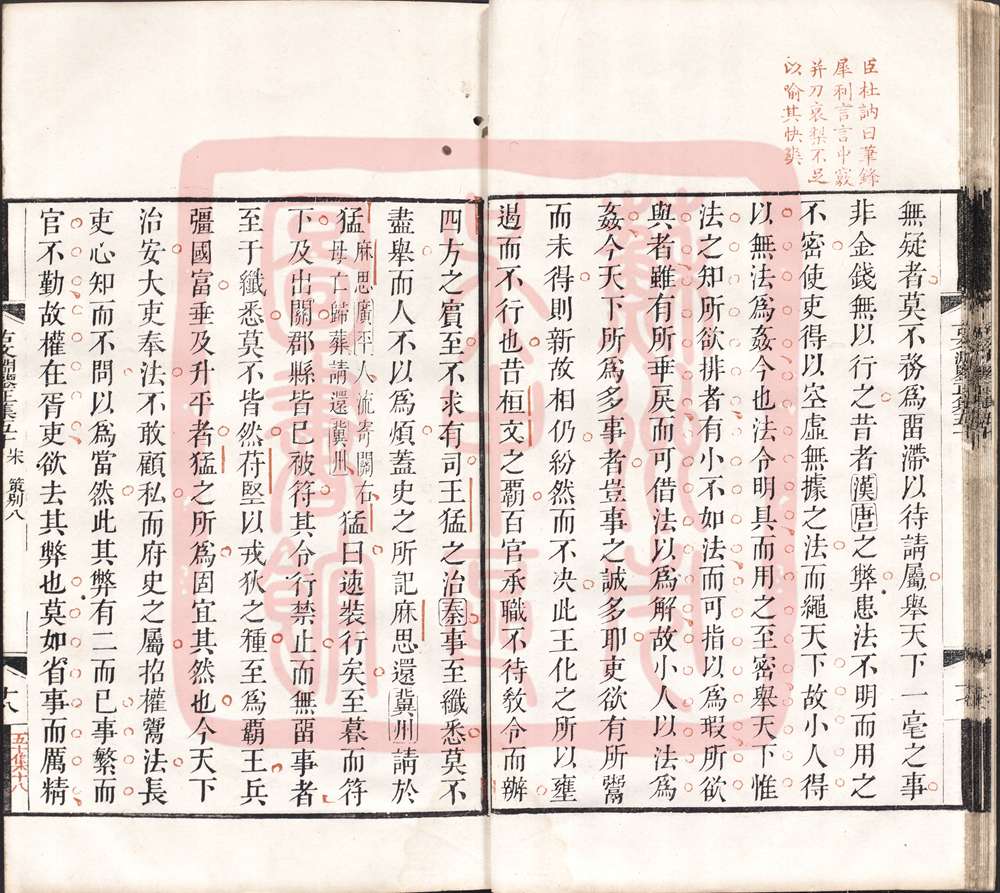 臣杜訥曰筆鋒
犀利言言中窾
并刀哀梨不足
以喻其快爽
無疑者莫不務爲畱滯以待請屬舉天下一毫之事
非金錢無以行之昔者漢唐之弊患法不明而用之
不密使吏得以空虛無據之法而繩天下故小人得
以無法爲姦今也法令明具而用之至密舉天下惟
法之知所欲排者有小不如法而可指以爲瑕所欲
與者雖有所乖戾而可借法以爲解故小人以法爲
姦今天下所爲多事者豈事之誠多耶吏欲有所鬻
而未得則新故相仍紛然而不决此王化之所以壅
遏而不行也昔桓文之霸百官承職不待敎令而辦
四方之賓至不求有司王猛之治秦事至纖悉莫不
盡舉而人不以爲煩蓋史之所記麻思還冀州請於
猛麻思廣平人流寄關右母亡歸葬請還冀州猛曰速裝行矣至暮而符
下及出關郡縣皆已被符其令行禁止而無畱事者
至于纖悉莫不皆然苻堅以戎狄之種至爲霸王兵
彊國富垂及升平者猛之所爲固宜其然也今天下
治安大吏奉法不敢顧私而府史之屬招權鬻法長
吏心知而不問以爲當然此其弊有二而已事繁而
官不勤故權在胥吏欲去其弊也莫如省事而厲精
古文淵鑒正集五十 宋 策别八
十八
五十集十八